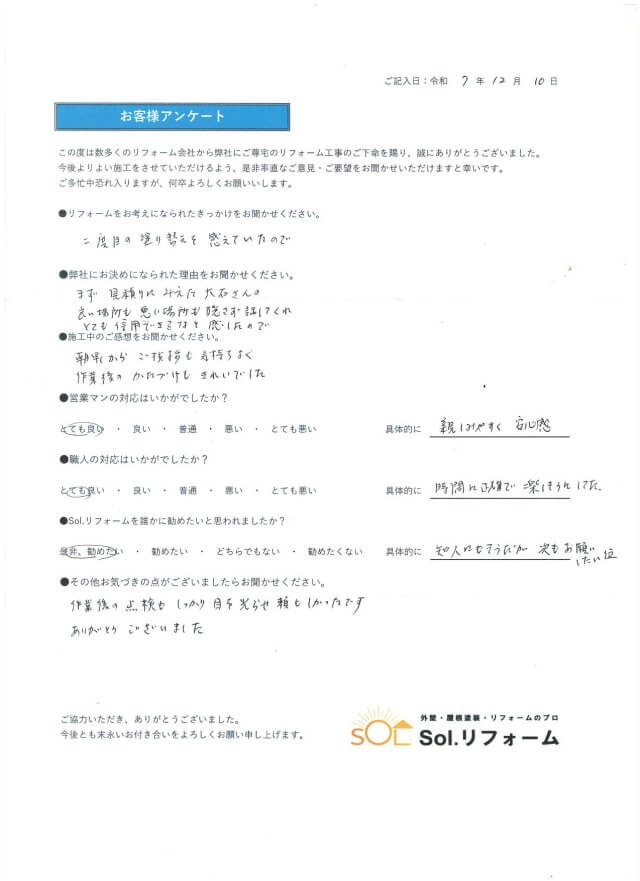 ご記入日：令和 7 年 12 月 10 日
お客様アンケート
この度は数多くのリフォーム会社から弊社にご尊宅のリフォーム工事のご下命を賜り、誠にありがとうございました。
今後よりよい施工をさせていただけるよう、是非率直なご意見・ご要望をお聞かせいただけますと幸いです。
ご多忙中恐れ入りますが、何卒よろしくお願いいします。
●リフォームをお考えになられたきっかけをお聞かせください。
二度目の塗り替えを考えていたので
●弊社にお決めになられた理由をお聞かせください。
まず 見積りにみえた大石さん。
良い場所も悪い場所も隠さず話してくれ
とても信用できるなと感じたので
●施工中のご感想をお聞かせください。
朝早くから ご挨拶も気持ちよく
作業後のかたづけもきれいでした
●営業マンの対応はいかがでしたか？
とても良い ・ 良い ・ 普通 ・ 悪い ・ とても悪い 具体的に 親しみやすく 安心感
●職人の対応はいかがでしたか？
とても良い ・ 良い ・ 普通 ・ 悪い ・ とても悪い 具体的に 時間に正確で
●Sol.リフォームを誰かに勧めたいと思われましたか？
是非、勧めたい ・ 勧めたい ・ どちらでもない ・ 勧めたくない 具体的に 知人にもそうだが 次もお願い
したい位
●その他お気づきの点がございましたらお聞かせください。
作業後の点検もしっかり目を光らせ頼もしかったです
ありがとうございました
ご協力いただき、ありがとうございました。
今後とも末永いお付き合いをよろしくお願い申し上げます。
外壁・屋根塗装・リフォームのプロ
SOL Sol.リフォーム